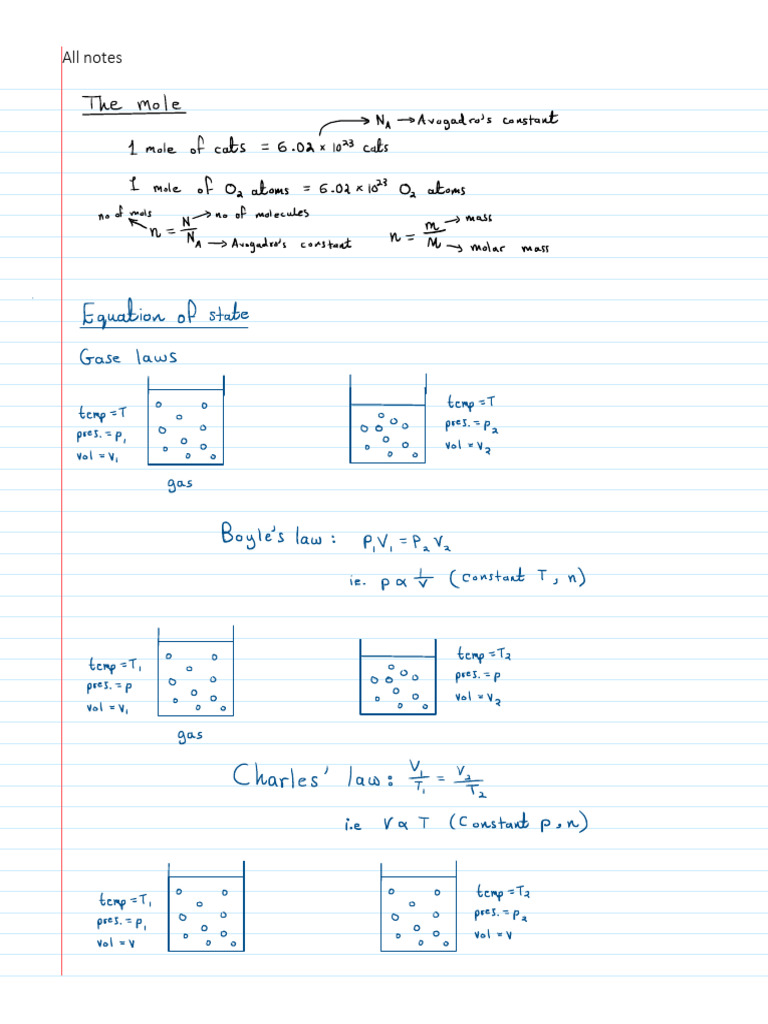 All notes
The mole
N_A → Avogadro's constant
1 mole of cats = 6.02 × 10²³ cats
1 mole of O₂ atoms = 6.02 × 10²³ O₂ atoms
no of mols
n = N/N_A
→ no of molecules
→ Avogadro's constant
n = m/M
→ mass
→ molar mass
Equation of state
Gase laws
temp = T
pres. = p₁
vol = V₁
gas
temp = T
pres. = p₂
vol = V₂
Boyle's law: P₁V₁ = P₂V₂
ie. p ∝ 1/V (constant T, n)
temp = T₁
pres. = p
vol = V₁
gas
temp = T₂
pres. = p
vol = V₂
Charles' law: V₁/T₁ = V₂/T₂
i.e V ∝ T (Constant p, n)
temp = T₁
pres. = p₁
vol = V
temp = T₂
pres. = p₂
vol = V